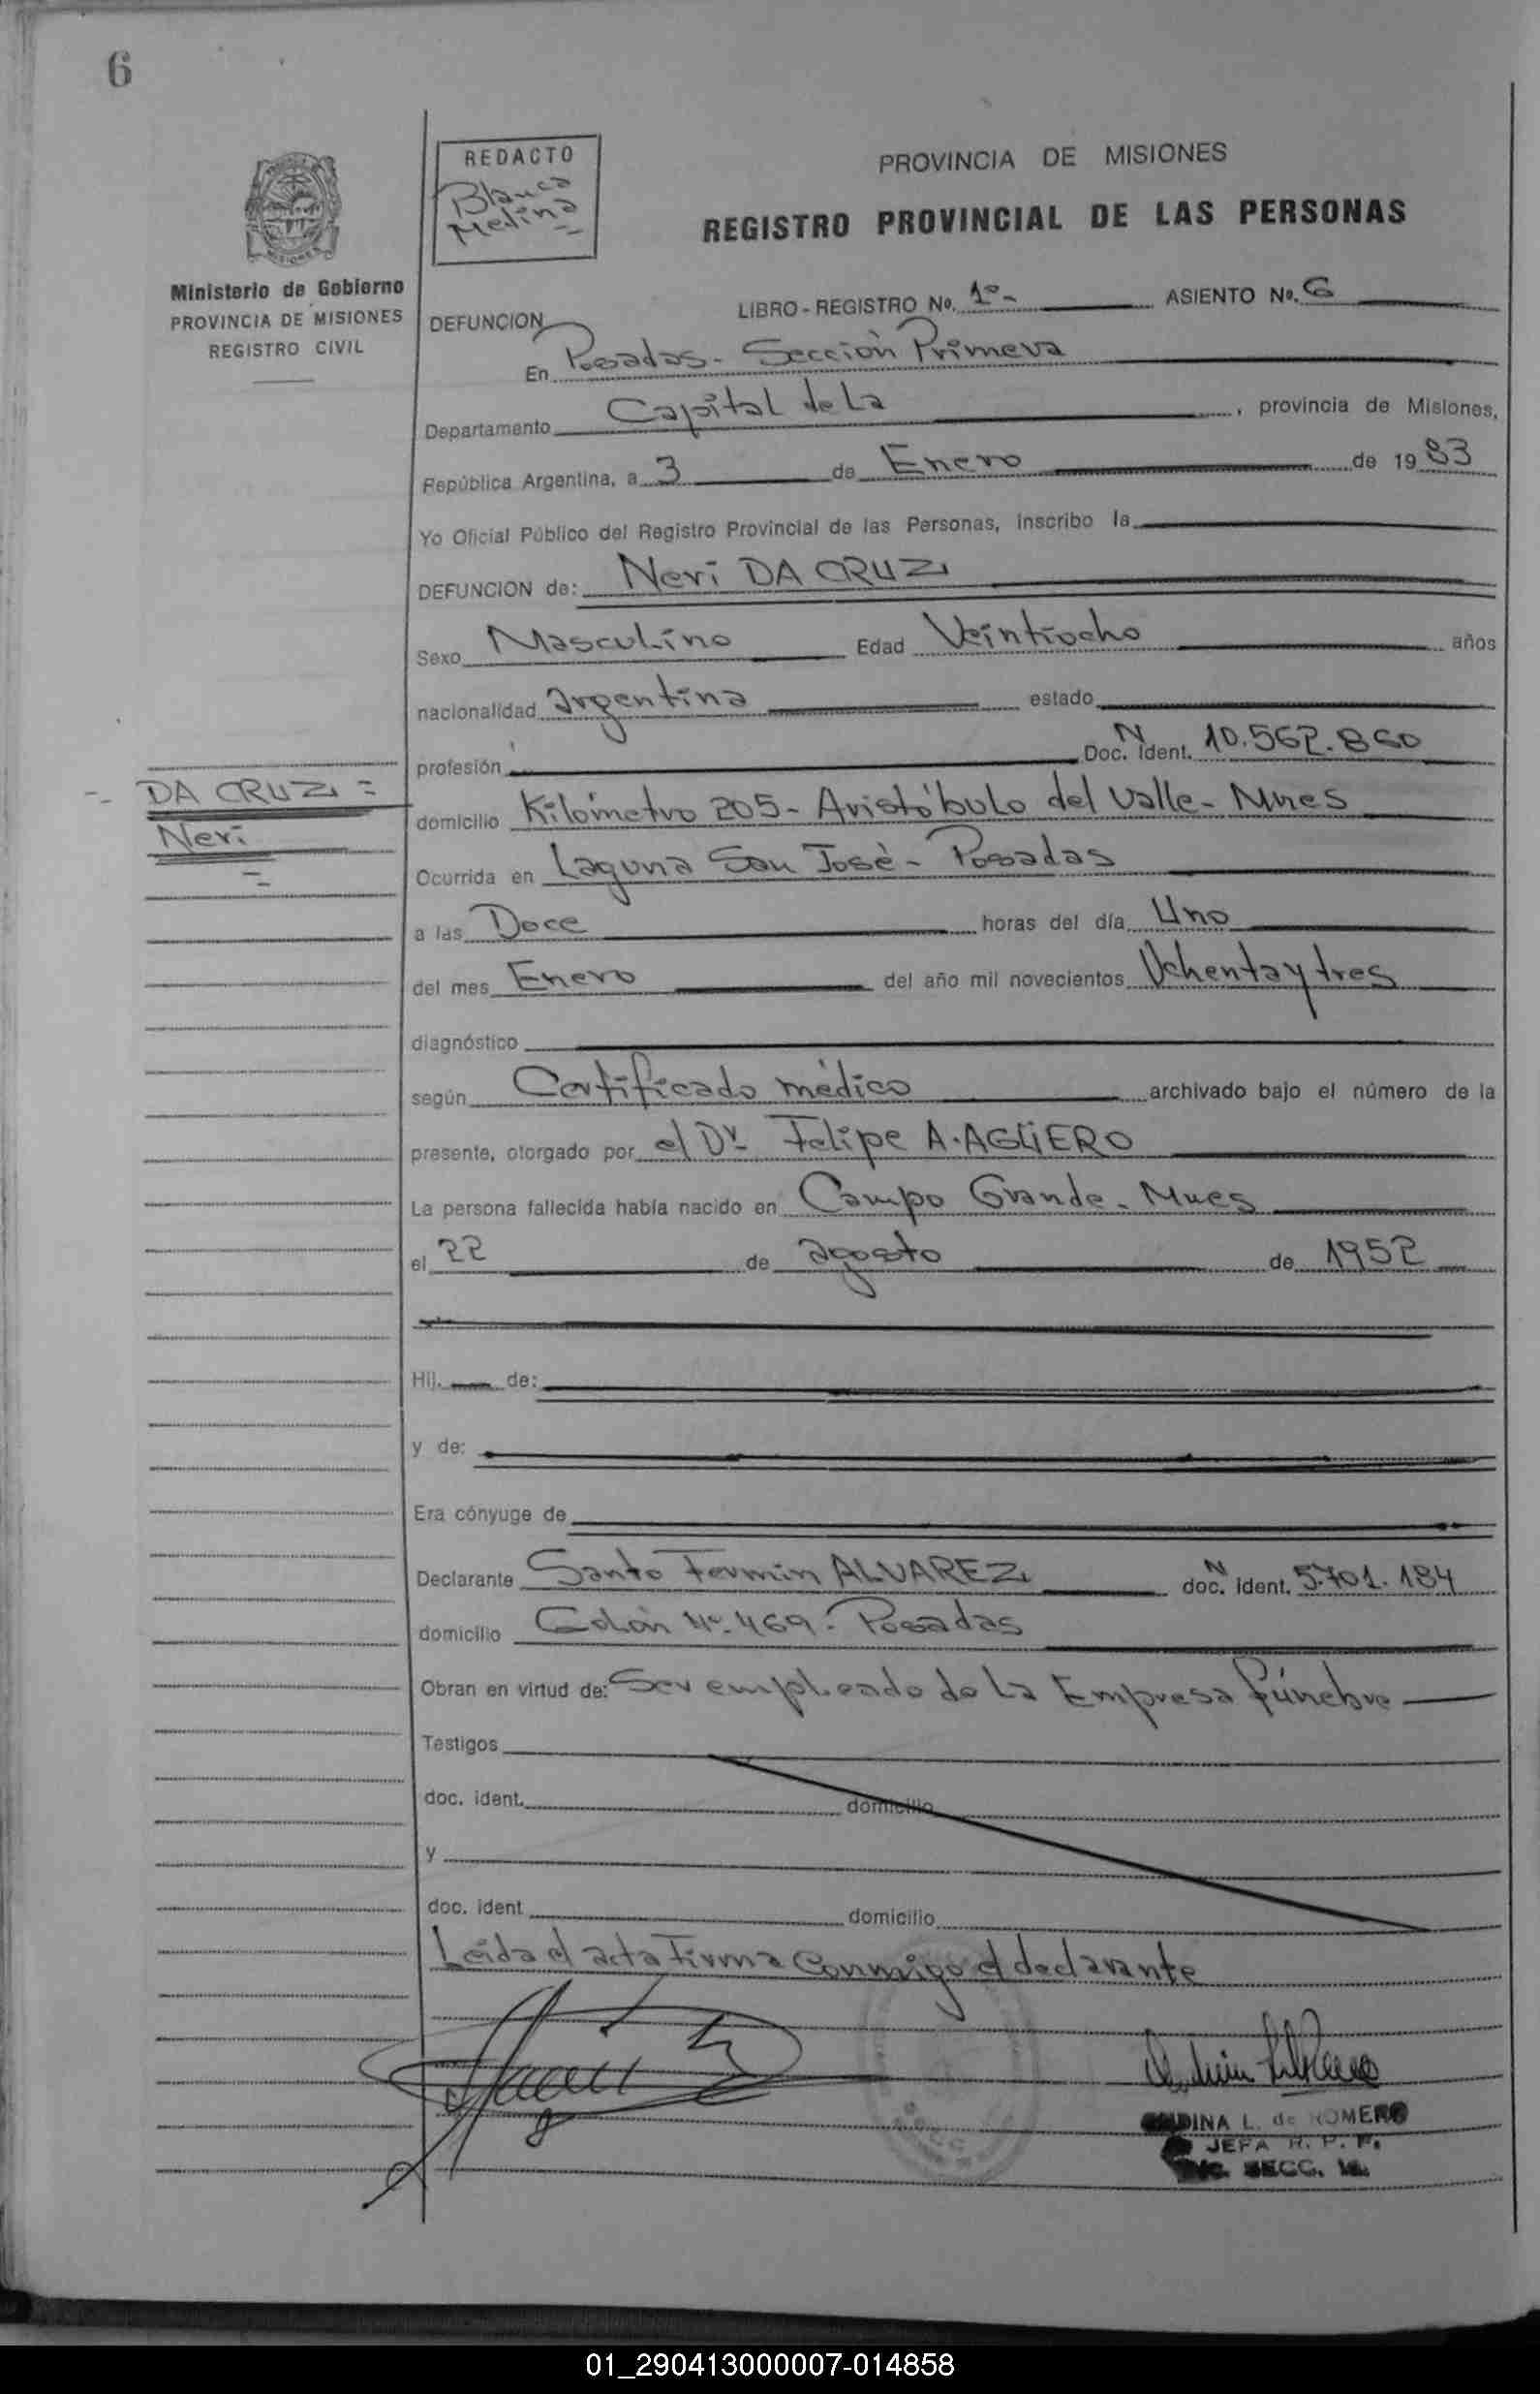 6
REDACTO
Blanca
Medina
PROVINCIA DE MISIONES
REGISTRO PROVINCIAL DE LAS PERSONAS
Ministerio de Gobierno
PROVINCIA DE MISIONES
REGISTRO CIVIL
LIBRO - REGISTRO No. 1º- ASIENTO No. 6
DEFUNCION
En Posadas - Sección Primera
Departamento Capital de La , provincia de Misiones,
República Argentina, a 3 de Enero de 1983
Yo Oficial Público del Registro Provincial de las Personas, inscribo la
DEFUNCION de: Neri DA CRUZ
Sexo Masculino Edad Veintiocho años
nacionalidad argentina estado
profesión Doc. N Ident. 10.562.860
DA CRUZ =
Neri
=
domicilio Kilómetro 205 - Aristóbulo del Valle - Mnes
Ocurrida en Laguna San José - Posadas
a las Doce horas del día Uno
del mes Enero del año mil novecientos Ochenta y tres
diagnóstico
según Certificado médico archivado bajo el número de la
presente, otorgado por el Dr. Felipe A. AGÜERO
La persona fallecida había nacido en Campo Grande - Mnes
el 22 de agosto de 1952
Hij. de:
y de:
Era cónyuge de
Declarante Santo Fermin ALVAREZ doc. N ident. 5.701.184
domicilio Colón Nº 469 - Posadas
Obran en virtud de: Ser empleado de La Empresa fúnebre
Testigos
doc. ident. domicilio
y
doc. ident domicilio
Leída el acta Firma conmigo el declarante
L. de ROMERO
JEFA R. P. P.
SECC. 1a.
01_290413000007-014858